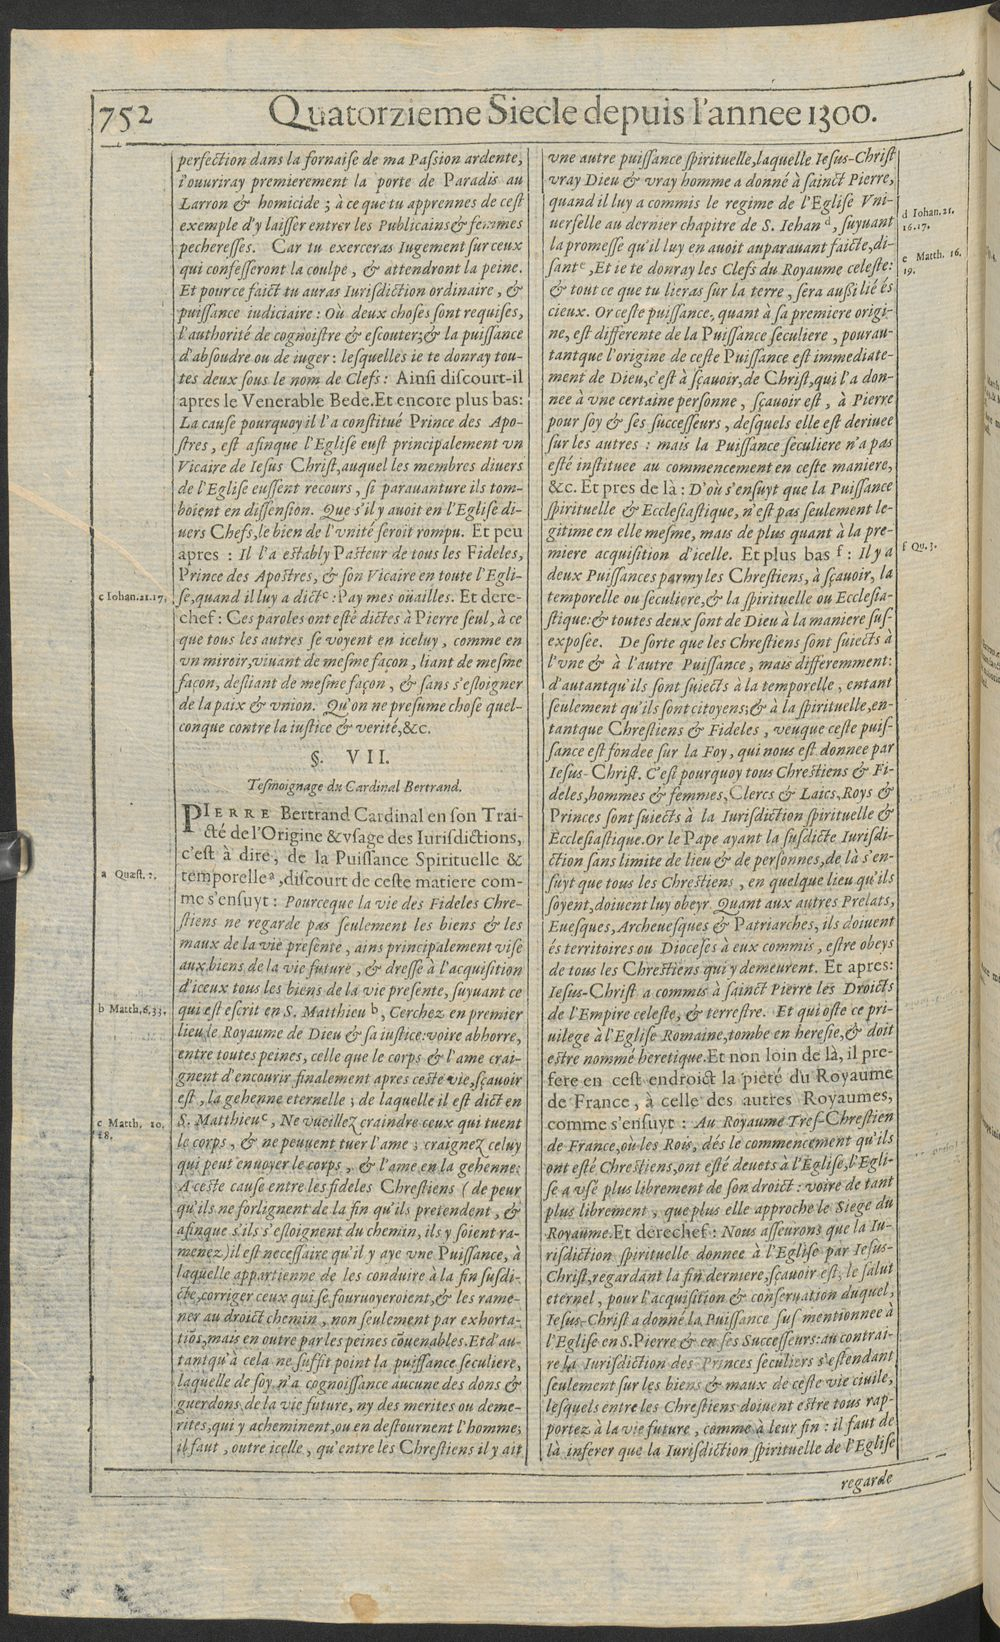 752
Quatorzieme Siecle depuis l'annee 1300.
perfection dans la fornaise de ma Passion ardente,
i'ouuriray premierement la porte de Paradis au
Larron & homicide ; à ce que tu apprennes de cest
exemple d'y laisser entrer les Publicains & femmes
pecheresses. Car tu exerceras Iugement sur ceux
qui confesseront la coulpe, & attendront la peine.
Et pource faict tu auras Iurisdiction ordinaire, &
puissance iudiciaire : Où deux choses sont requises,
l'authorité de cognoistre & escouter;& la puissance
d'absoudre ou de iuger : lesquelles ie te donray tou-
tes deux sous le nom de Clefs : Ainsi discourt-il
apres le Venerable Bede. Et encore plus bas:
La cause pourquoy il l'a constitué Prince des Apo-
stres, est afinque l'Eglise eust principalement vn
Vicaire de Iesus Christ, auquel les membres diuers
de l'Eglise eussent recours, si parauanture ils tom-
boient en dissension. Que s'il y auoit en l'Eglise di-
uers Chefs, le bien de l'vnité seroit rompu. Et peu
apres : Il l'a estably Pasteur de tous les Fideles,
Prince des Apostres, & son Vicaire en toute l'Egli-
c Iohan.21.17.
se, quand il luy a dict c : Pay mes oüailles. Et dere-
chef : Ces paroles ont esté dictes à Pierre seul, à ce
que tous les autres se voyent en iceluy, comme en
vn miroir, viuant de mesme façon, liant de mesme
façon, desliant de mesme façon, & sans s'esloigner
de la paix & vnion. Qu'on ne presume chose quel-
conque contre la iustice & verité, &c.
§. VII.
Tesmoignage du Cardinal Bertrand.
PIERRE Bertrand Cardinal en son Trai-
cté de l'Origine & vsage des Iurisdictions,
c'est à dire, de la Puissance Spirituelle &
a Quæst. 2.
temporelle a, discourt de ceste matiere com-
me s'ensuyt : Pourceque la vie des Fideles Chre-
stiens ne regarde pas seulement les biens & les
maux de la vie presente, ains principalement vise
aux biens de la vie future, & dresse à l'acquisition
d'iceux tous les biens de la vie presente, suyuant ce
b Matth.6.33.
qui est escrit en S. Matthieu b, Cerchez en premier
lieu le Royaume de Dieu & sa iustice: voire abhorre,
entre toutes peines, celle que le corps & l'ame crai-
gnent d'encourir finalement apres ceste vie, sçauoir
est, la gehenne eternelle ; de laquelle il est dict en
c Matth. 10.
28.
S. Matthieu c, Ne vueillez craindre ceux qui tuent
le corps, & ne peuuent tuer l'ame ; craignez celuy
qui peut enuoyer le corps, & l'ame en la gehenne:
A ceste cause entre les fideles Chrestiens (de peur
qu'ils ne forlignent de la fin qu'ils pretendent, &
afinque s'ils s'esloignent du chemin, ils y soient ra-
menez) il est necessaire qu'il y aye vne Puissance, à
laquelle appartienne de les conduire à la fin susdi-
cte, corriger ceux qui se fouruoyeroient, & les rame-
ner au droict chemin, non seulement par exhorta-
tiõs, mais en outre par les peines cõuenables. Et d'au-
tantqu'à cela ne suffit point la puissance seculiere,
laquelle de soy n'a cognoissance aucune des dons &
guerdons de la vie future, ny des merites ou deme-
rites, qui y acheminent, ou en destournent l'homme;
il faut, outre icelle, qu'entre les Chrestiens il y ait
vne autre puissance spirituelle, laquelle Iesus-Christ
vray Dieu & vray homme a donné à sainct Pierre,
quand il luy a commis le regime de l'Eglise Vni-
d Iohan.21.
16.17.
uerselle au dernier chapitre de S. Iehan d, suyuant
la promesse qu'il luy en auoit auparauant faicte, di-
e Matth. 16.
19.
sant e, Et ie te donray les Clefs du Royaume celeste:
& tout ce que tu lieras sur la terre, sera aussi lié és
cieux. Or ceste puissance, quant à sa premiere origi-
ne, est differente de la Puissance seculiere, pourau-
tantque l'origine de ceste Puissance est immediate-
ment de Dieu, c'est à sçauoir, de Christ, qui l'a don-
nee à vne certaine personne, sçauoir est, à Pierre
pour soy & ses successeurs, desquels elle est deriuee
sur les autres : mais la Puissance seculiere n'a pas
esté instituee au commencement en ceste maniere,
&c. Et pres de là : D'où s'ensuyt que la Puissance
spirituelle & Ecclesiastique, n'est pas seulement le-
gitime en elle mesme, mais de plus quant à la pre-
f Qu. 3.
miere acquisition d'icelle. Et plus bas f : Il y a
deux Puissances parmy les Chrestiens, à sçauoir, la
temporelle ou seculiere, & la spirituelle ou Ecclesia-
stique: & toutes deux sont de Dieu à la maniere sus-
exposee. De sorte que les Chrestiens sont suiects à
l'vne & à l'autre Puissance, mais differemment:
d'autantqu'ils sont suiects à la temporelle, entant
seulement qu'ils sont citoyens; & à la spirituelle, en-
tantque Chrestiens & Fideles, veuque ceste puis-
sance est fondee sur la Foy, qui nous est donnee par
Iesus-Christ. C'est pourquoy tous Chrestiens & Fi-
deles, hommes & femmes, Clercs & Laics, Roys &
Princes sont suiects à la Iurisdiction spirituelle &
Ecclesiastique. Or le Pape ayant la susdicte Iurisdi-
ction sans limite de lieu & de personnes, de là s'en-
suyt que tous les Chrestiens, en quelque lieu qu'ils
soyent, doiuent luy obeyr. Quant aux autres Prelats,
Euesques, Archeuesques & Patriarches, ils doiuent
és territoires ou Dioceses à eux commis, estre obeys
de tous les Chrestiens qui y demeurent. Et apres:
Iesus-Christ a commis à sainct Pierre les Droicts
de l'Empire celeste, & terrestre. Et qui oste ce pri-
uilege à l'Eglise Romaine, tombe en heresie, & doit
estre nommé heretique. Et non loin de là, il pre-
fere en cest endroict la pieté du Royaume
de France, à celle des autres Royaumes,
comme s'ensuyt : Au Royaume Tres-Chrestien
de France, où les Rois, dés le commencement qu'ils
ont esté Chrestiens, ont esté deuots à l'Eglise, l'Egli-
se a vsé plus librement de son droict : voire de tant
plus librement, que plus elle approche le Siege du
Royaume. Et derechef : Nous asseurons que la Iu-
risdiction spirituelle donnee à l'Eglise par Iesus-
Christ, regardant la fin derniere, sçauoir est, le salut
eternel, pour l'acquisition & conseruation duquel,
Iesus-Christ a donné la Puissance sus mentionnee à
l'Eglise en S. Pierre & en ses Successeurs: au contrai-
re la Iurisdiction des Princes seculiers s'estendant
seulement sur les biens & maux de ceste vie ciuile,
lesquels entre les Chrestiens doiuent estre tous rap-
portez à la vie future, comme à leur fin : il faut de
là inferer que la Iurisdiction spirituelle de l'Eglise
regarde